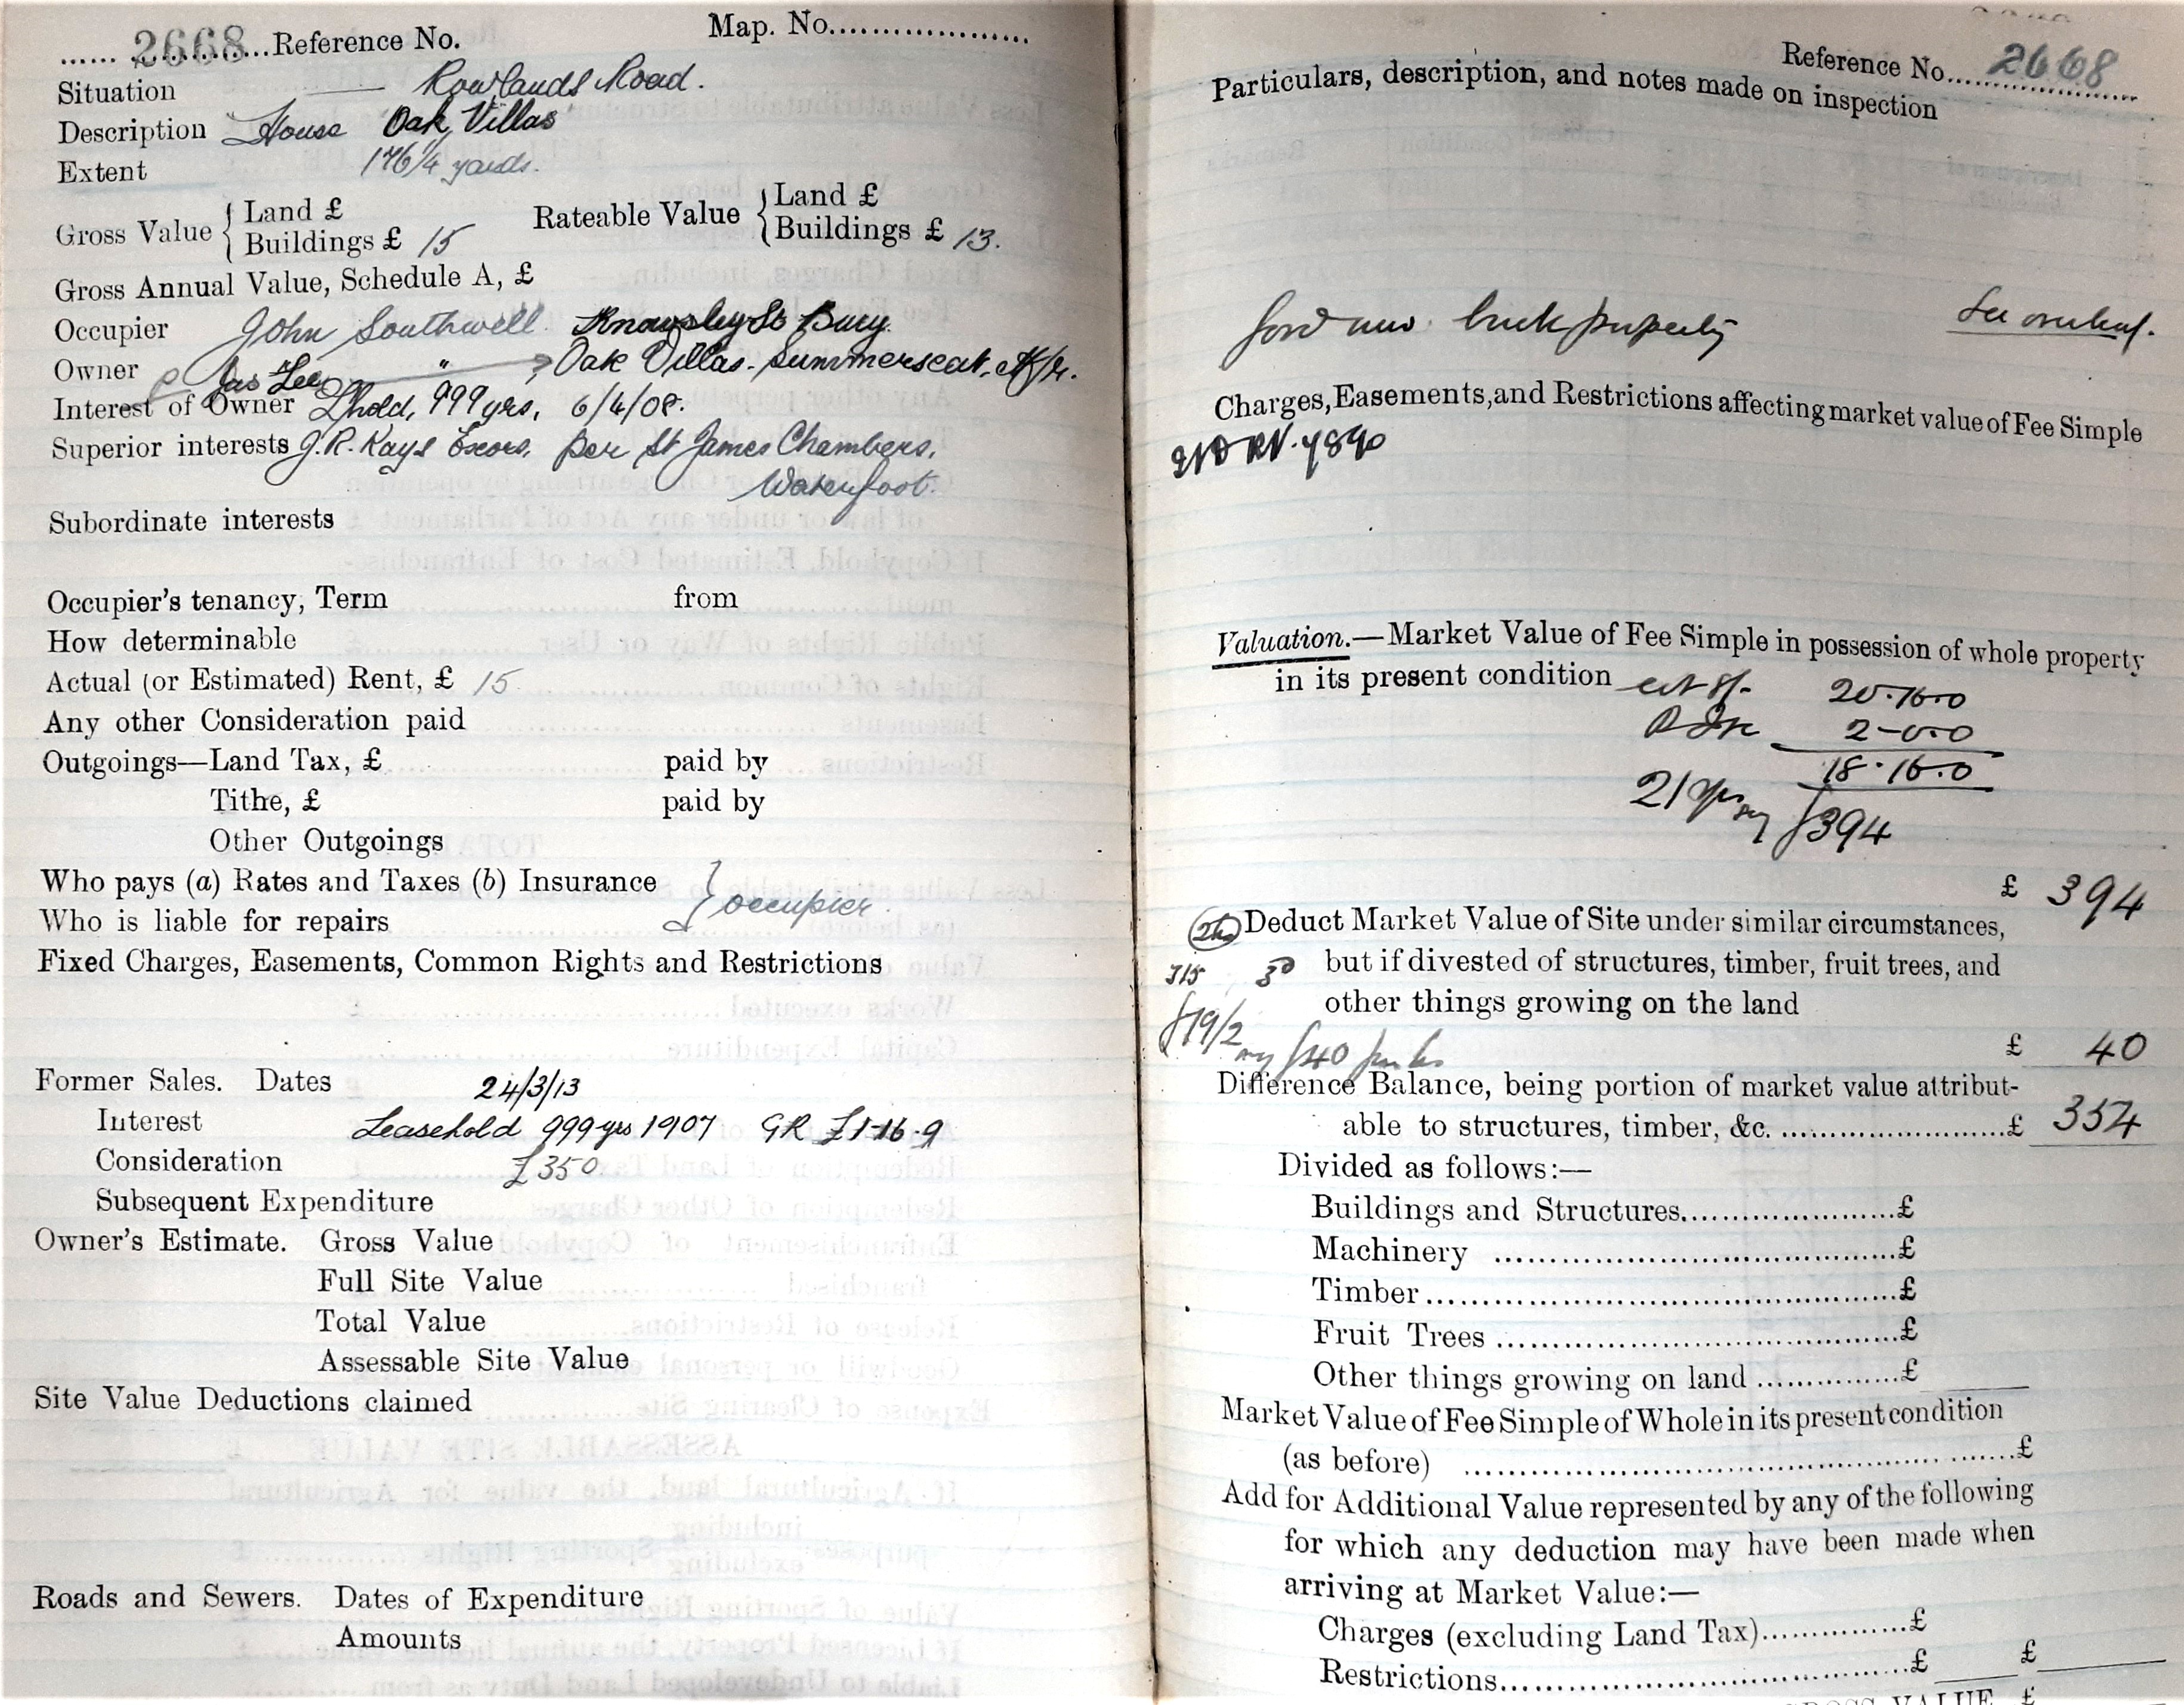 2668 Reference No.
Map. No.
Situation Rowlands Road.
Description House Oak Villas
Extent 176 1/4 yards.
Gross Value { Land £
Buildings £ 15
Rateable Value { Land £
Buildings £ 13.
Gross Annual Value, Schedule A, £
Occupier John Southwell Knowsley St Bury.
Owner Jas Lee " Oak Villas. Summerseat.
Interest of Owner Lhold, 999 yrs, 6/4/08.
Superior interests J.R. Kays Exors. per St James Chambers,
Waterfoot.
Subordinate interests
Occupier's tenancy, Term from
How determinable
Actual (or Estimated) Rent, £ 15
Any other Consideration paid
Outgoings—Land Tax, £ paid by
Tithe, £ paid by
Other Outgoings
Who pays (a) Rates and Taxes (b) Insurance
Who is liable for repairs } occupier.
Fixed Charges, Easements, Common Rights and Restrictions
Former Sales. Dates 24/3/13
Interest Leasehold 999 yrs 1907 GR £1-16-9
Consideration £350
Subsequent Expenditure
Owner's Estimate. Gross Value
Full Site Value
Total Value
Assessable Site Value
Site Value Deductions claimed
Roads and Sewers. Dates of Expenditure
Amounts
Reference No. 2668
Particulars, description, and notes made on inspection
Good new brick property
See overleaf.
Charges, Easements, and Restrictions affecting market value of Fee Simple
Valuation.—Market Value of Fee Simple in possession of whole property
in its present condition est 8/- 20.16.0
2-0.0
18.16.0
21 yrs say £394
£ 394
Deduct Market Value of Site under similar circumstances,
but if divested of structures, timber, fruit trees, and
other things growing on the land
say £40
£ 40
Difference Balance, being portion of market value attribut-
able to structures, timber, &c. £ 354
Divided as follows:—
Buildings and Structures £
Machinery £
Timber £
Fruit Trees £
Other things growing on land £
Market Value of Fee Simple of Whole in its present condition
(as before) £
Add for Additional Value represented by any of the following
for which any deduction may have been made when
arriving at Market Value:—
Charges (excluding Land Tax) £
Restrictions £ £